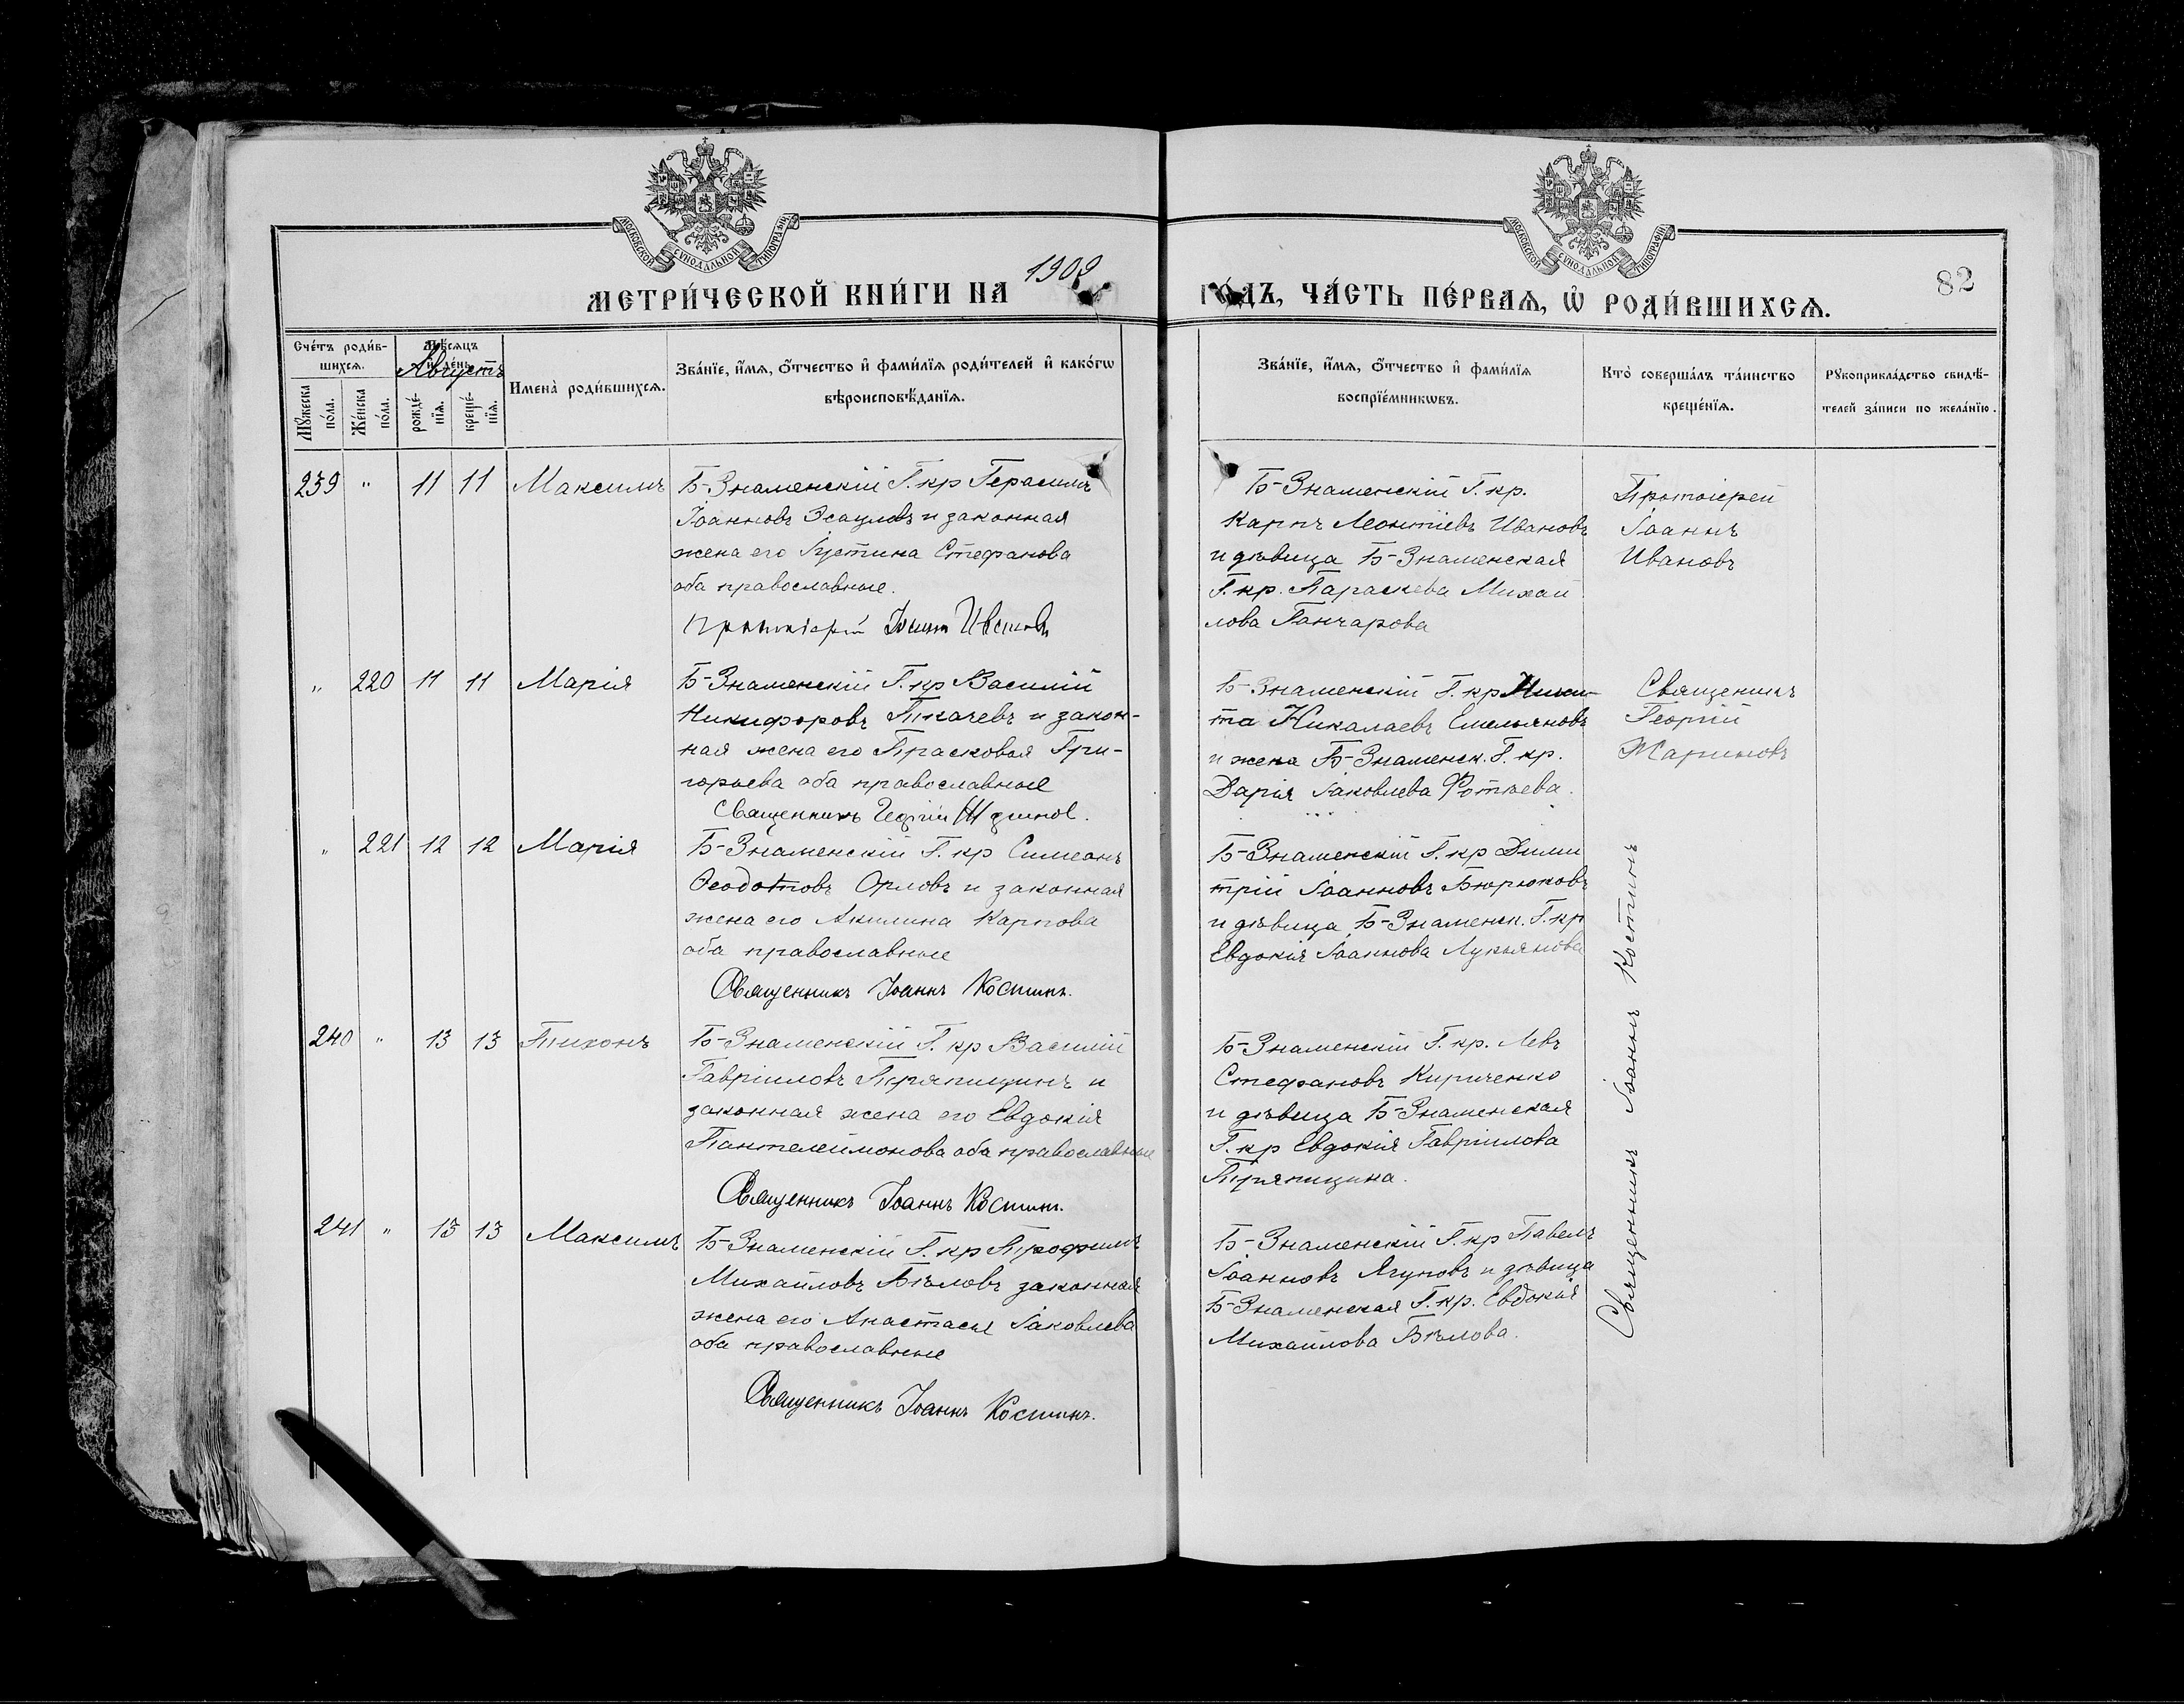 МОСКОВСКОЙ СѴНОДАЛЬНОЙ ТИПОГРАФІИ
МОСКОВСКОЙ СѴНОДАЛЬНОЙ ТИПОГРАФІИ
МЕТРИ́ЧЕСКОЙ КНИ́ГИ НА 1902
ГО́ДЪ, ЧА́СТЬ ПЕ́РВАѦ, Ѽ РОДИ́ВШИХСѦ.
82
Сче́тъ роди́в-
шихсѧ.
Мѣ́сѧцъ
и де́нь.
Августъ
Мꙋжеска
по́ла.
Же́нска
по́ла.
рожде́-
нїѧ.
креще́-
нїѧ.
Имена̀ роди́вшихсѧ.
Зва́нїе, и҆́мѧ, ѻ҆́тчество и҆ фами́лїѧ роди́телей и҆ како́гѡ
вѣроисповѣ́данїѧ.
Зва́нїе, и҆́мѧ, ѻ҆́тчество и҆ фами́лїѧ
воспрїе́мникѡвъ.
Кто̀ соверша́лъ та́инство
креще́нїѧ.
Рꙋкоприкла́дство свидѣ́-
телей за́писи по жела́нїю.
239 " 11 11 Максимъ
Б-Знаменскій Г. кр Герасимъ
Іоанновъ Эсауловъ и законная
жена его Іустина Стефанова
оба православные.
Протоіерей Іоаннъ Ивановъ
Б-Знаменскій Г. кр.
Карпъ Леонтіевъ Ивановъ
и дѣвица Б-Знаменская
Г. кр. Параскева Михай
лова Ганчарова
Протоіерей
Іоаннъ
Ивановъ
" 220 11 11 Марія
Б-Знаменскій Г. кр Василій
Никифоровъ Ткачевъ и закон-
ная жена его Прасковья Гри-
горьева оба православные
Священникъ Георгій
Б-Знаменскій Г. кр Ники-
та Николаевъ Емельяновъ
и жена Б-Знаменск. Г. кр.
Дарія Іаковлева
Священикъ
Георгій
" 221 12 12 Марія
Б-Знаменскій Г. кр Симеонъ
Ѳеодотовъ Орловъ и законная
жена его Акилина Карпова
оба православные
Священникъ Іоаннъ Костинъ.
Б-Знаменскій Г. кр Дими
трій Іоанновъ Бюрюковъ
и дѣвица Б-Знаменск. Г. кр
Евдокія Іоаннова Лукьянова
Священникъ Іоаннъ Костинъ
240 " 13 13 Тихонъ
Б-Знаменскій Г. кр Василій
Гавріиловъ Тряпицинъ и
законная жена его Евдокія
Пантелеимонова оба православные
Священникъ Іоаннъ Костинъ.
Б-Знаменскій Г. кр. Левъ
Стефановъ Кириченко
и дѣвица Б-Знаменская
Г. кр Евдокія Гавріилова
Тряпицина.
241 " 13 13 Максимъ
Б-Знаменскій Г. кр Трофимъ
Михайловъ Бѣловъ законная
жена его Анастасья Іаковлева
оба православные
Священникъ Іоаннъ Костинъ.
Б-Знаменскій Г. кр Павелъ
Іоанновъ Ягуновъ и дѣвица
Б-Знаменская Г. кр. Евдокія
Михайлова Бѣлова.